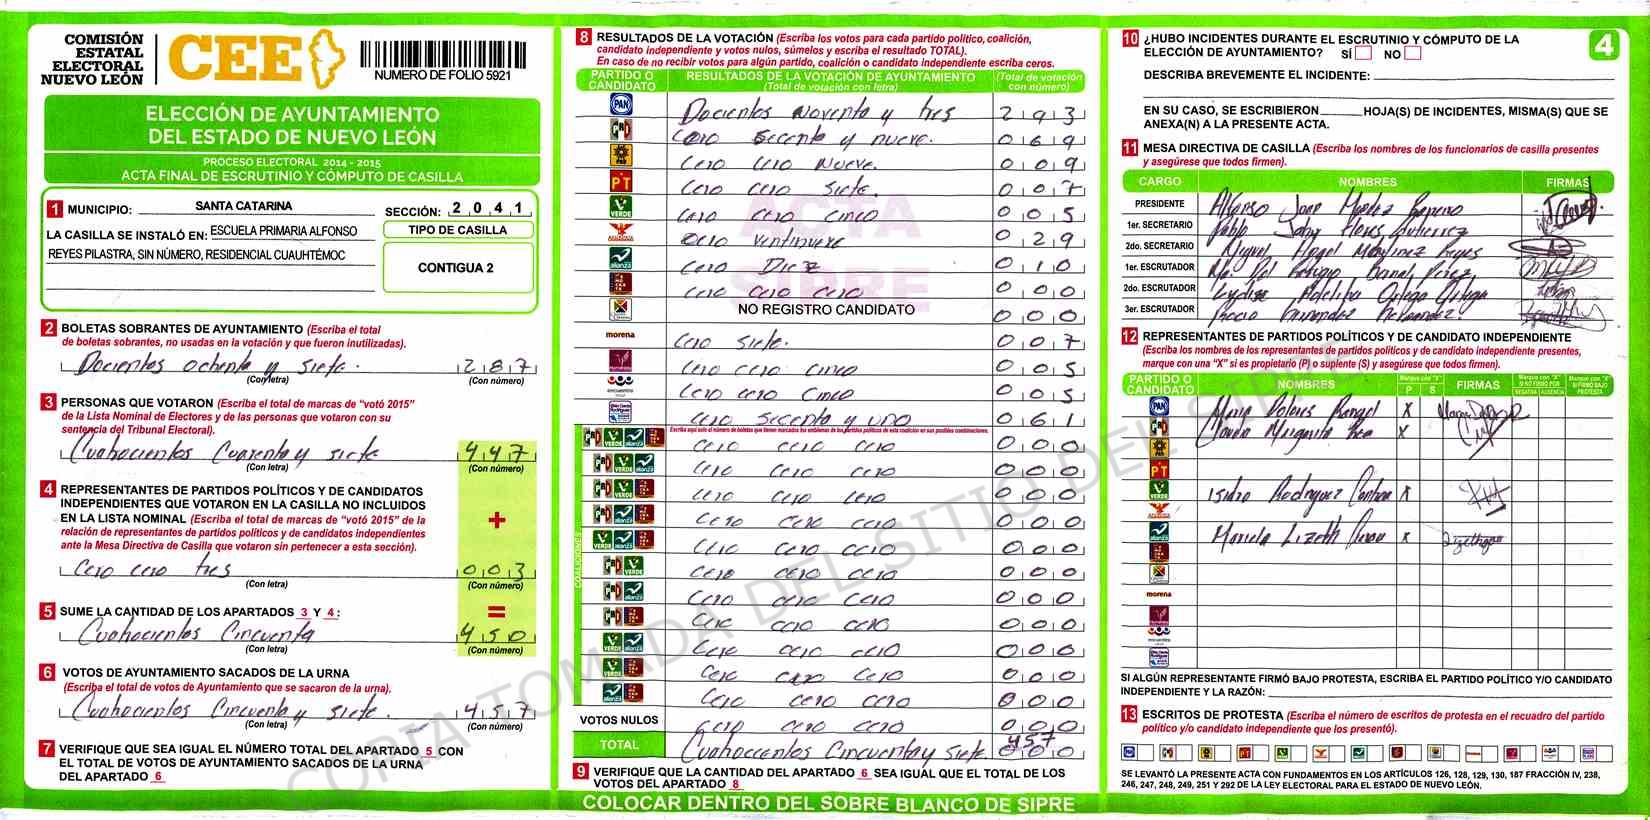 COMISIÓN
ESTATAL
ELECTORAL
NUEVO LEÓN
CEE
NUMERO DE FOLIO 5921
ELECCIÓN DE AYUNTAMIENTO
DEL ESTADO DE NUEVO LEÓN
PROCESO ELECTORAL 2014 - 2015
ACTA FINAL DE ESCRUTINIO Y CÓMPUTO DE CASILLA
1 MUNICIPIO: SANTA CATARINA
SECCIÓN: 2 0 4 1
LA CASILLA SE INSTALÓ EN: ESCUELA PRIMARIA ALFONSO
REYES PILASTRA, SIN NÚMERO, RESIDENCIAL CUAUHTÉMOC
TIPO DE CASILLA
CONTIGUA 2
2 BOLETAS SOBRANTES DE AYUNTAMIENTO (Escriba el total
de boletas sobrantes, no usadas en la votación y que fueron inutilizadas).
Docientos ochenta y siete. 287
(Con letra) (Con número)
3 PERSONAS QUE VOTARON (Escriba el total de marcas de "votó 2015"
de la Lista Nominal de Electores y de las personas que votaron con su
sentencia del Tribunal Electoral).
Cuatrocientos Cuarenta y siete 447
(Con letra) (Con número)
4 REPRESENTANTES DE PARTIDOS POLÍTICOS Y DE CANDIDATOS
INDEPENDIENTES QUE VOTARON EN LA CASILLA NO INCLUIDOS
EN LA LISTA NOMINAL (Escriba el total de marcas de "votó 2015" de la
relación de representantes de partidos políticos y de candidatos independientes
ante la Mesa Directiva de Casilla que votaron sin pertenecer a esta sección).
+
Cero cero tres 003
(Con letra) (Con número)
5 SUME LA CANTIDAD DE LOS APARTADOS 3 Y 4: =
Cuatrocientos Cincuenta 450
(Con letra) (Con número)
6 VOTOS DE AYUNTAMIENTO SACADOS DE LA URNA
(Escriba el total de votos de Ayuntamiento que se sacaron de la urna).
Cuatrocientos Cincuenta y siete. 457
(Con letra) (Con número)
7 VERIFIQUE QUE SEA IGUAL EL NÚMERO TOTAL DEL APARTADO 5 CON
EL TOTAL DE VOTOS DE AYUNTAMIENTO SACADOS DE LA URNA
DEL APARTADO 6
8 RESULTADOS DE LA VOTACIÓN (Escriba los votos para cada partido político, coalición,
candidato independiente y votos nulos, súmelos y escriba el resultado TOTAL).
En caso de no recibir votos para algún partido, coalición o candidato independiente escriba ceros.
PARTIDO O CANDIDATO
RESULTADOS DE LA VOTACIÓN DE AYUNTAMIENTO
(Total de votación con letra)
(Total de votación con número)
PAN Docientos noventa y tres 293
PRI Cero secenta y nueve. 069
PRD Cero cero nueve. 009
PT Cero cero siete. 007
VERDE cero cero cinco 005
cero ventinueve 029
alianza cero Diez 010
cero cero cero 000
NO REGISTRO CANDIDATO 000
morena cero siete. 007
cero cero cinco 005
encuentro cero cero cinco 005
cero secenta y uno 061
COALICIONES
Escriba aquí solo el número de boletas que tienen marcados los emblemas de los partidos políticos de esta coalición en sus posibles combinaciones.
cero cero cero 000
cero cero cero 000
cero cero cero 000
cero cero cero 000
cero cero cero 000
cero cero cero 000
cero cero cero 000
cero cero cero 000
cero cero cero 000
cero cero cero 000
cero cero cero 000
VOTOS NULOS cero cero cero 000
TOTAL Cuatrocientos Cincuenta y siete. 457 000
9 VERIFIQUE QUE LA CANTIDAD DEL APARTADO 6 SEA IGUAL QUE EL TOTAL DE LOS
VOTOS DEL APARTADO 8
COLOCAR DENTRO DEL SOBRE BLANCO DE SIPRE
ACTA
SIPRE
COPIA TOMADA DEL SITIO DEL SIPRE
10 ¿HUBO INCIDENTES DURANTE EL ESCRUTINIO Y CÓMPUTO DE LA
ELECCIÓN DE AYUNTAMIENTO? SÍ NO
4
DESCRIBA BREVEMENTE EL INCIDENTE:
EN SU CASO, SE ESCRIBIERON HOJA(S) DE INCIDENTES, MISMA(S) QUE SE
ANEXA(N) A LA PRESENTE ACTA.
11 MESA DIRECTIVA DE CASILLA (Escriba los nombres de los funcionarios de casilla presentes
y asegúrese que todos firmen).
CARGO NOMBRES FIRMAS
PRESIDENTE Alfonso Juan
1er. SECRETARIO Pablo John Flores Gutierrez
2do. SECRETARIO Miguel Angel Martinez Reyes
1er. ESCRUTADOR Ma. Del Bernal Perez
2do. ESCRUTADOR Ortega Ortega
3er. ESCRUTADOR Rocio Hernandez Hernandez
12 REPRESENTANTES DE PARTIDOS POLÍTICOS Y DE CANDIDATO INDEPENDIENTE
(Escriba los nombres de los representantes de partidos políticos y de candidato independiente presentes,
marque con una "X" si es propietario (P) o suplente (S) y asegúrese que todos firmen).
PARTIDO O CANDIDATO NOMBRES Marque con "X" P S FIRMAS Marque con "X" SI NO FIRMÓ POR NEGATIVA AUSENCIA Marque con "X" SI FIRMÓ BAJO PROTESTA
PAN Maria Dolores Rangel X
PRI Margarita X
PRD
PT
VERDE Isidro Rodriguez X
alianza Mariela Lizeth X
morena
SI ALGÚN REPRESENTANTE FIRMÓ BAJO PROTESTA, ESCRIBA EL PARTIDO POLÍTICO Y/O CANDIDATO
INDEPENDIENTE Y LA RAZÓN:
13 ESCRITOS DE PROTESTA (Escriba el número de escritos de protesta en el recuadro del partido
político y/o candidato independiente que los presentó).
SE LEVANTÓ LA PRESENTE ACTA CON FUNDAMENTOS EN LOS ARTÍCULOS 126, 128, 129, 130, 187 FRACCIÓN IV, 238,
246, 247, 248, 249, 251 Y 292 DE LA LEY ELECTORAL PARA EL ESTADO DE NUEVO LEÓN.